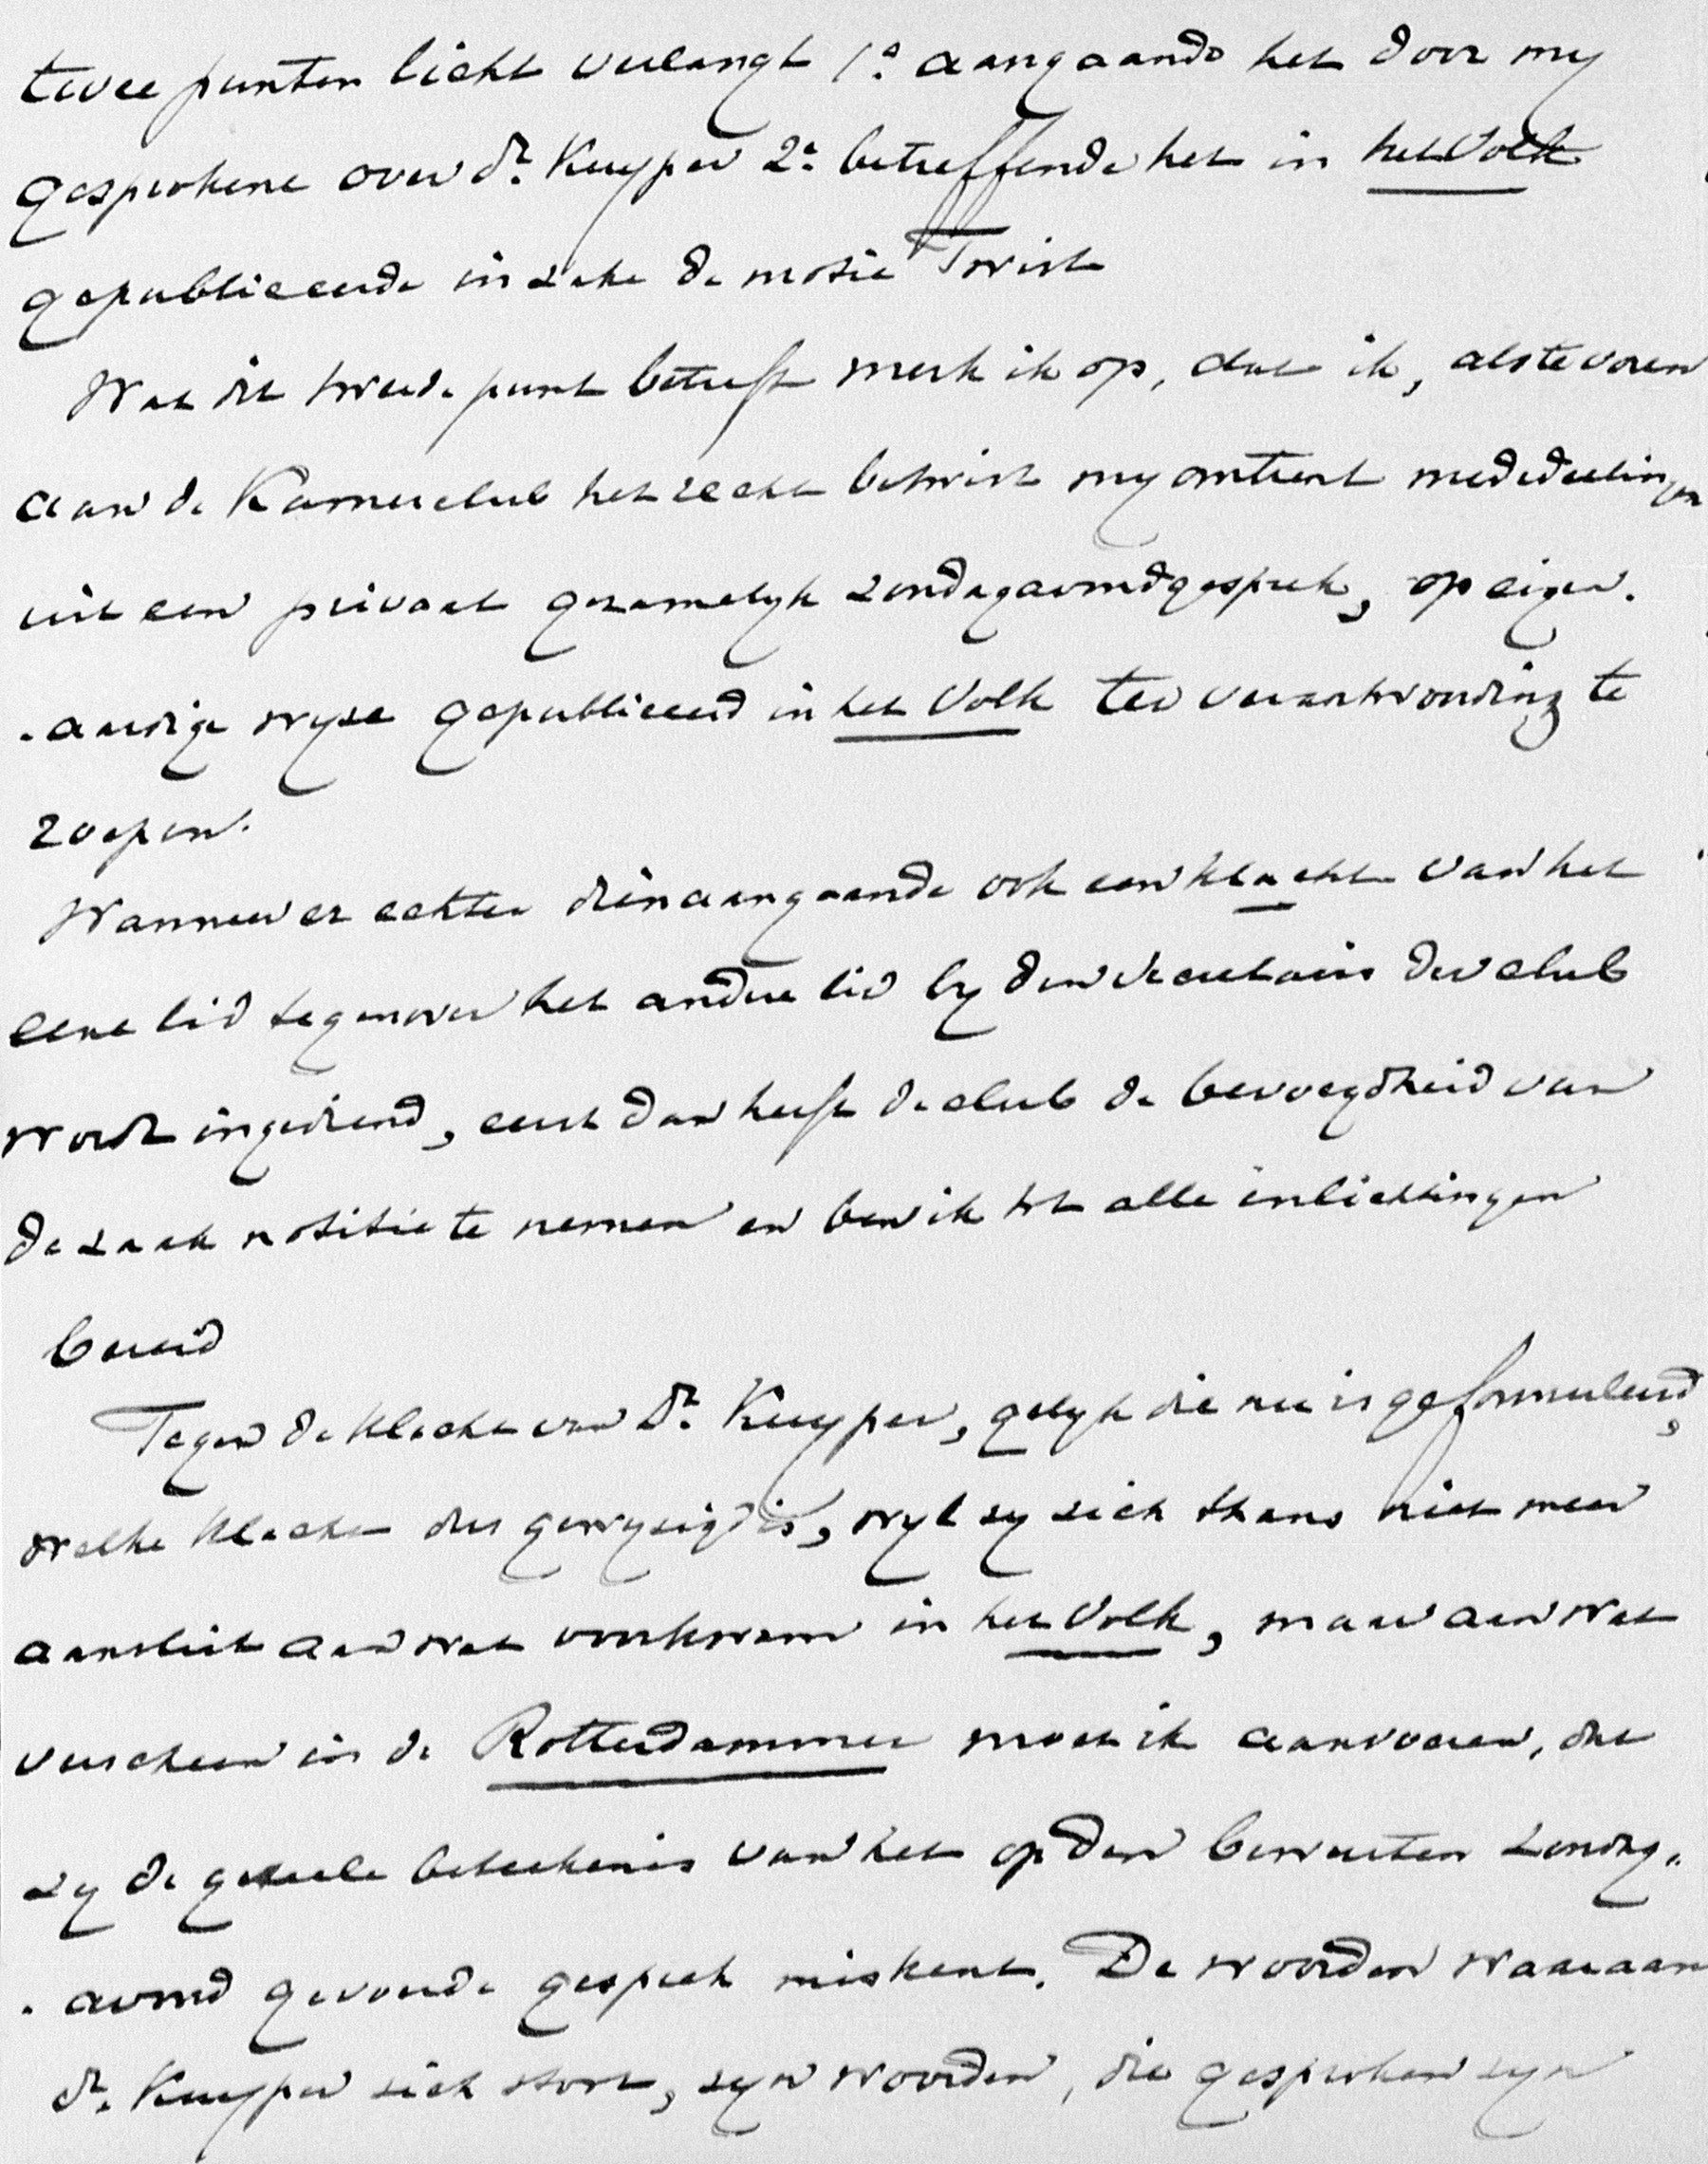 twee punten licht verlangt 1º aangaande het door my
gesprokene over dr. Kuyper 2º betreffende het in het Volk
gepubliceerde inzake de motie Twist
Wat dit tweede punt betreft merk ik op, dat ik, als te voren
aan de Kamerclub het recht betwist my omtrent mededeelingen
uit een privaat gezamelyk Zondagavondgesprek, op eigen-
-aardige wyze gepubliceerd in het Volk ter verantwoording te
roepen.
Wanneer er echter dienaangaande ook een klacht van het
eene lid tegenover het andere lid by den secretaris der club
wordt ingediend, eerst dan heeft de club de bevoegdheid van
de zaak notitie te nemen en ben ik tot alle inlichtingen
bereid
Tegen de klacht van Dr. Kuyper, gelyk die nu is geformuleerd,
welke klacht dus gewyzigd is, wyl zy zich thans niet meer
aansluit aan wat voorkwam in het Volk, maar aan wat
verscheen in de Rotterdammer moet ik aanvoeren, dat
zy de geheele beteekenis van het op den bewusten Zondag-
-avond gevoerde gesprek miskent. De woorden waaraan
dr. Kuyper zich stoot, zyn woorden, die gesproken zyn